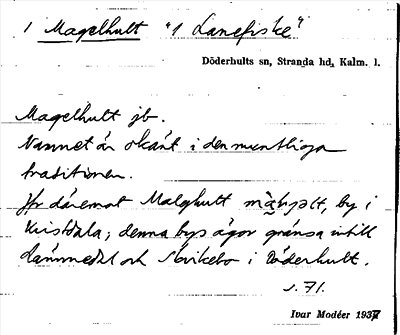 1 Magelhult "1 Lanefiske"
Döderhults sn, Stranda hd, Kalm. l.
Magelhult jb.
Namnet är okänt i den muntliga
traditionen.
Jfr däremot Malghult by i
Kristdala; denna bys ägor gränsa intill
och Århikebo i Döderhult.
s. 71.
Ivar Modéer 1937